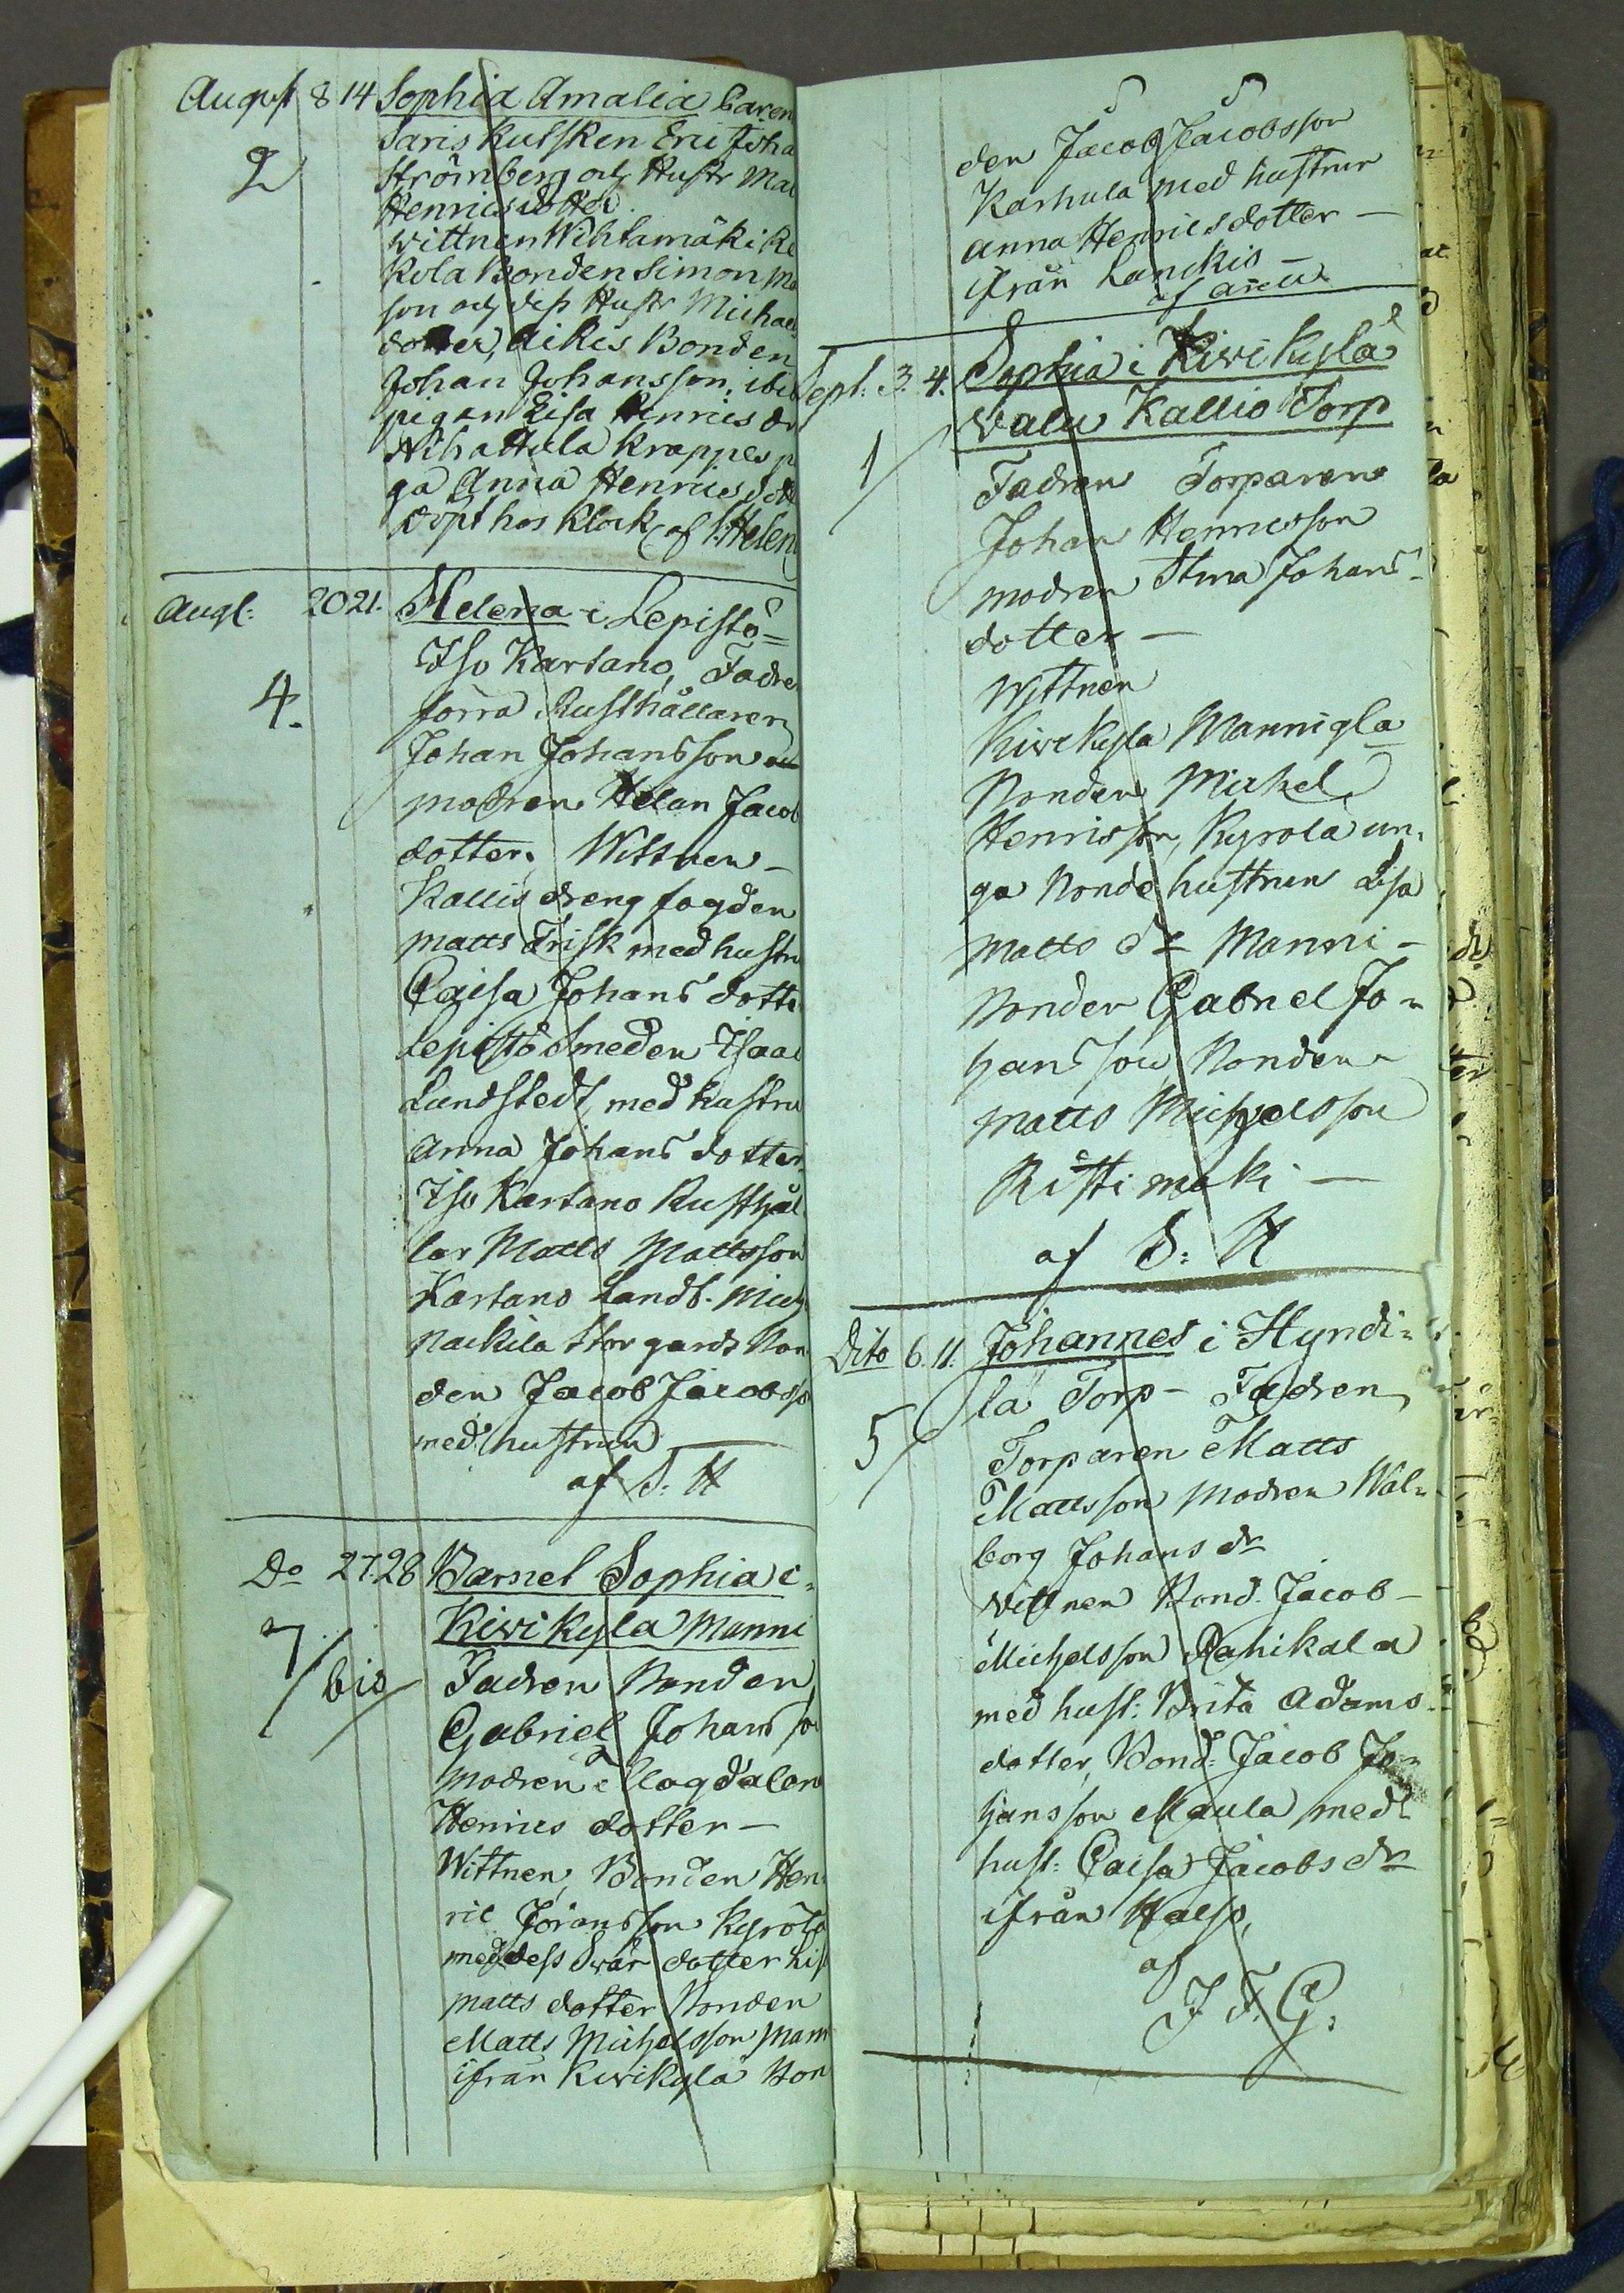 August 8 14 Sophia Amalia Baren
Saris Kusken Eric Joha
2 Strömberg och Hustr Mar
Henricsdotter.
Wittnen Wihlamäki Re
Kola Bonden Simon Ma
son och dess Hustr Michaels
dotter, Aikis Bonden
Johan Johansson, ibid
pigan Lisa Henrics dr
Nihattula Krappes pi
ga Anna Henrics dott
döpt hos Klock af S. Helen
Augt: 20 21. Helena i Lepistö=
Iso Kartano, Fadre
4. förra Rusthållaren
Johan Johansson
modren Helan Jacob
dotter, Wittnen –
Kallis dreng fogden
Matts Frisk med hustru
Caisa Johans dotter
Lepistö Smeden Isaac
Lundstedt med hustru
Anna Johans dotter,
Iso Kartano Rusthål
lar Matts Mattsson
Kartano Landb. Mich
Nackila Storgards Bon
den Jacob Jacobsso
med hustrun
af S. H
Do 27. 28 Barnet Sophia i
Kiwikyla Manni
7/bis Fadren Bonden
Gabriel Johansso
modren Magdalena
Henrics dotter –
Wittnen, Bonden Hen
ric Joransson Kyrölä
med dess Swär dotter Lis
Matts dotter Bonden
Matts Michelsson Mann
ifrån Kiwikylä Bon
den Jacob Jacobsson
Karhula med hustrun
Anna Henricsdotter –
ifrån Lanckis –
Sept: 3. 4. Sophia i Kiwikylä
Walu Kallio Torp
1/ Fadren Torparen
Johan Henricsson
modren Stina Johans
dotter –
Wittnen
Kiwikyla Mannigla
Bonden Michel
Henrisson, Kyrola un=
ga Bonde hustrun Lisa
Matts dr Manni –
Bonden Gabriel Jo=
hansson Bonden
Matts Michelsson
Ristimaki –
af S: H
Dito 6. 11. Johannes i Hyndi=
la Torp – Fadren
5/ Torparen Matts
Mattsson Modren Wal=
borg Johans dr
Vittnen Bond. Jacob –
Michelsson Rahikala
med hust: Brita Adams
dotter, Bond: Jacob Jo=
hansson Maula med
hust: Caisa Jacobs dr
ifrån
af
J F. G.